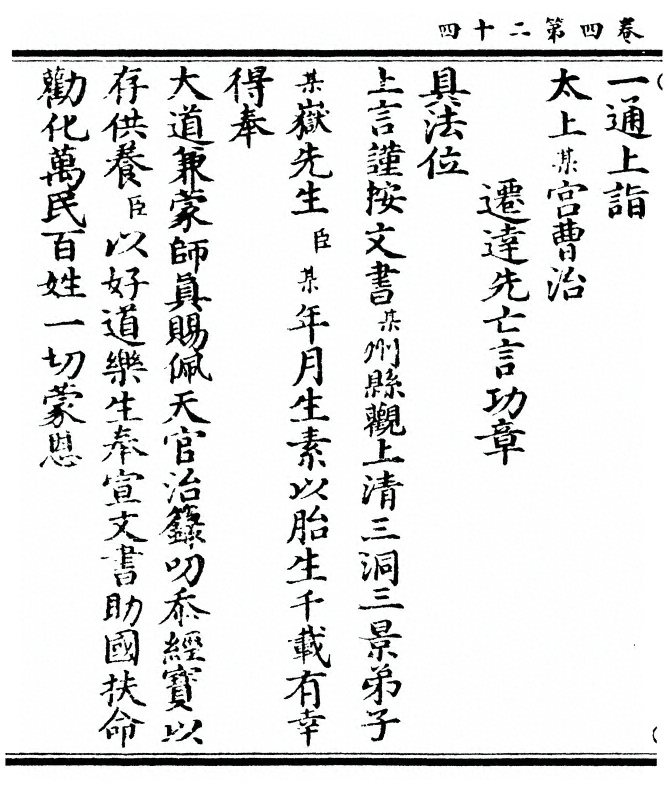 卷四第二十四
一通上詣
太上某宮曹治
遷達先亡言功章
具法位
上言謹按文書某州縣觀上清三洞三景弟子
某嶽先生臣某年月生素以胎生千載有幸
得奉
大道兼蒙師眞賜佩天官治籙叨忝經寶以
存供養臣以好道樂生奉宣文書助國扶命
勸化萬民百姓一切蒙恩